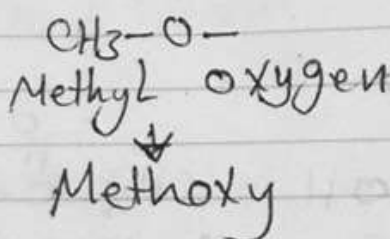 CH3-O-
Methyl oxygen
↓
Methoxy